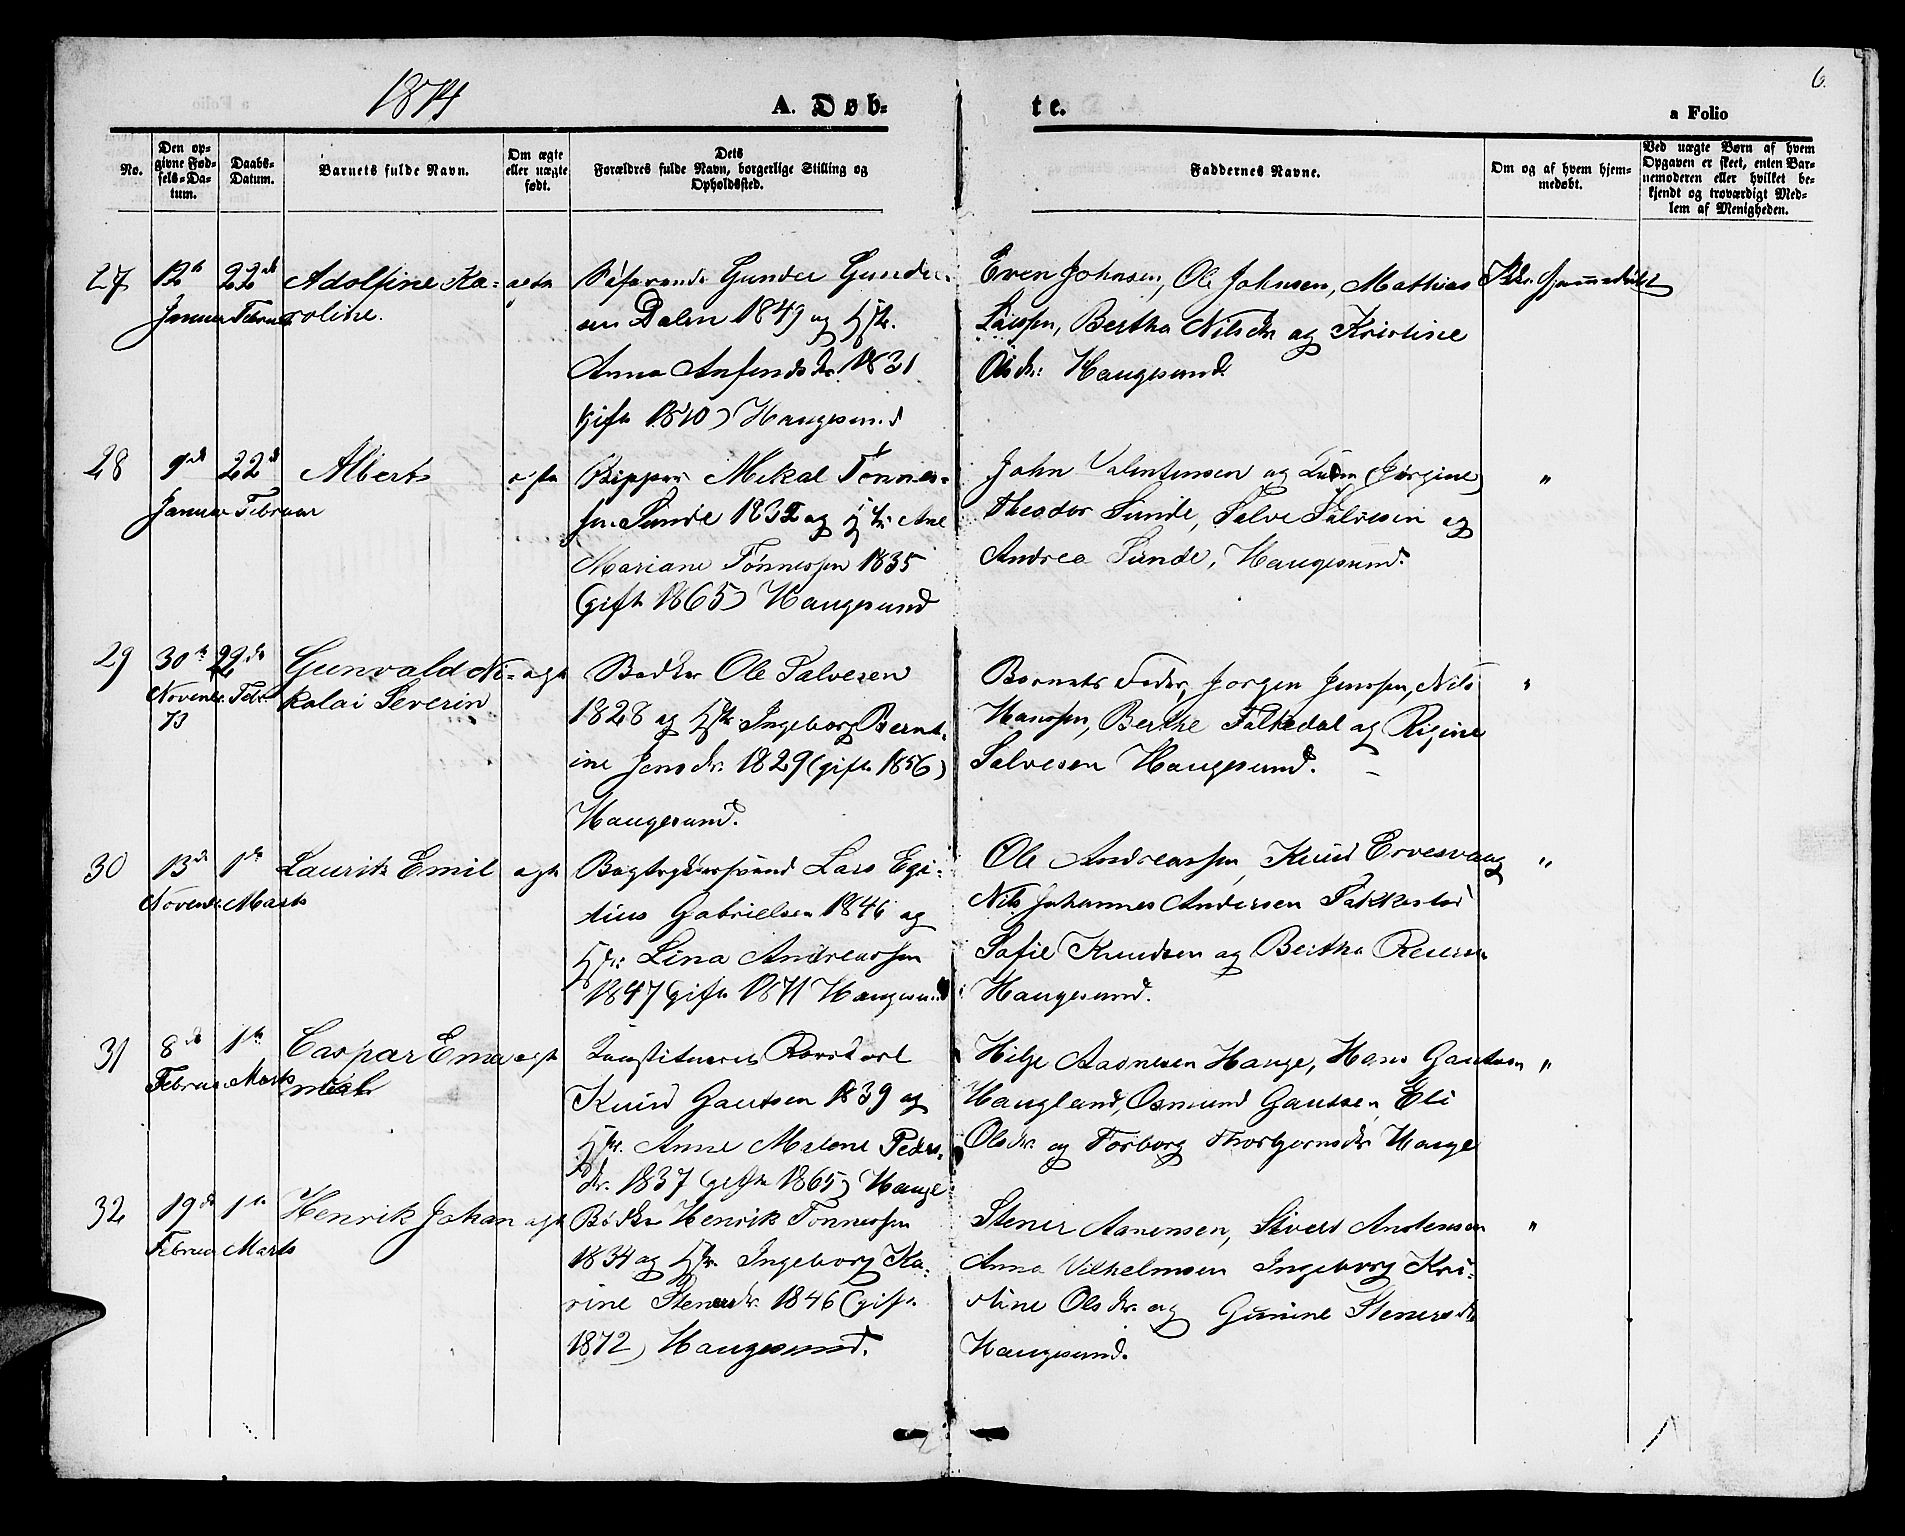 1874
A. Døb-
te.
a Folio
6.
No.
Den opgivne Fødsels-Datum.
Daabs-Datum.
Barnets fulde Navn.
Om ægte eller uægte født.
Dets Forældres fulde Navn, borgerlige Stilling og Opholdssted.
Faddernes Navne.
Om og af hvem hjemmedøbt.
Ved uægte Børn af hvem Opgaven er skeet, enten Barnemoderen eller hvilket bekjendt og troværdigt Medlem af Menigheden.
27 12te Januar 22de Februar Adolfine Ka-
roline.
ægte
Søfarende Gunder Gunder-
sen Dalen 1849 og Hstr.
Anna Anfindsdr. 1831
(gift 1870) Haugesund
Even Johnsen, Ole Johnsen, Mathias
Larssen, Bertha Nilsdr og Kristine
Olsdr: Haugesund.
Ikke hjemmedøbt
28 9de Januar 22de Februar Albert ægte
Mikal Tønnes-
sen Sunde 1832 og Hstr. Ane
Mariane Tønnessen 1835
(gift 1865) Haugesund
John Valentinsen og (Jørgine)
Theodor Sunde, Salve Salvesen og
Andrea Sunde, Haugesund.
"
29 30te November 73 22de Febr. Gunvald Ni-
kolai Severin
ægte
Bødker Ole Salvesen
1828 og Hstr. Ingeborg Bernt-
ine Jensdr. 1829 (gift 1856)
Haugesund.
Barnets Fader, Jørgen Jenssen, Nils
Hanssen, Berthe Falkedal og Rigine
Salvesen Haugesund.
"
30 13de November 1ste Marts Lauritz Emil ægte
Bogtrykkersvend Lars Egi-
dius Gabrielsen 1846 og
Hstr: Lina Andreassen
1847 (gift 1871 Haugesund
Ole Andreassen, Knud Ervesvaag
Nils Johannes Andersen Sakkestad
Sofie Knudsen og Bertha Reiersen
Haugesund.
"
31 8de Februar 1ste Marts Caspar Ema
nuel
ægte
Konstitueret
Knud Gautsen 1839 og
Hstr. Anne Malene Peders-
dr. 1837 (gift 1865) Hauge
Hilje Aasnesen Hauge, Hans Gautsen
Haugland, Osmund Gautsen, Eli
Olsdr. og Torborg Thorbjørnsdr. Hauge
"
32 19de Februar 1ste Marts Henrik Johan ægte
Bødker Henrik Tønnessen
1834 og Hstr. Ingeborg Ka-
rine Stenersdr. 1846 (gift
1872) Haugesund.
Stener Asmensen, Sivert Andersen
Anna Vilhelmsen Ingeborg Kri-
stine Olsdr. og Gunine Stenersdr
Haugesund.
"